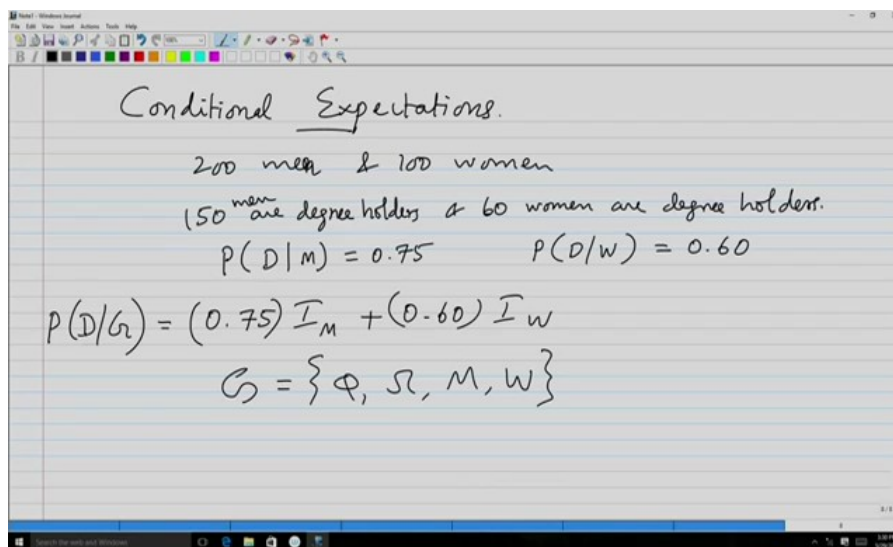 Note1 - Windows Journal
File Edit View Insert Actions Tools Help
B I
Conditional Expectations.
200 men & 100 women
150 men are degree holders & 60 women are degree holders.
P(D|M) = 0.75 P(D/W) = 0.60
P(D/G) = (0.75) I_M + (0.60) I_W
G = {φ, Ω, M, W}
Search the web and Windows